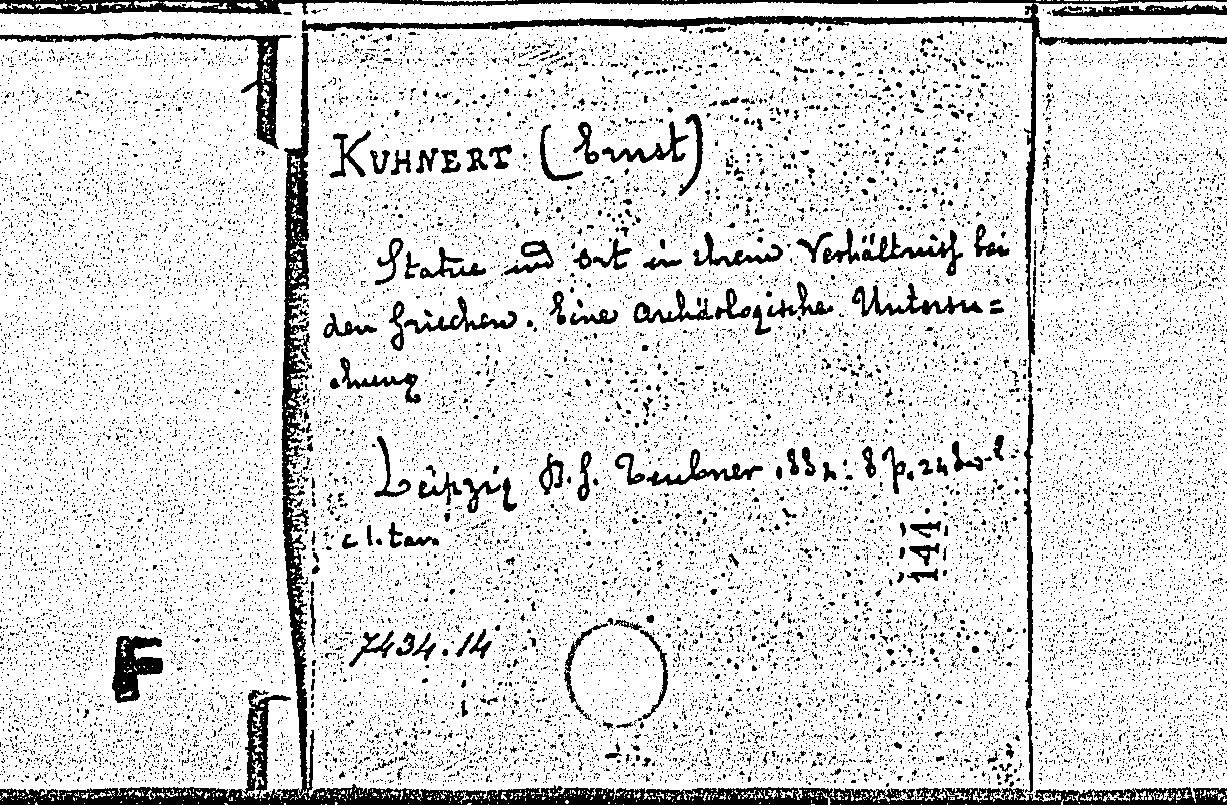 KUHNERT (Ernst)
Statue und Ort in ihrem Verhältniss bei
den Griechen. Eine archäologische Untersu=
chung
Leipzig B.G. Teubner 1884: 8 p.
c 1. tav.
144
7434.14
F